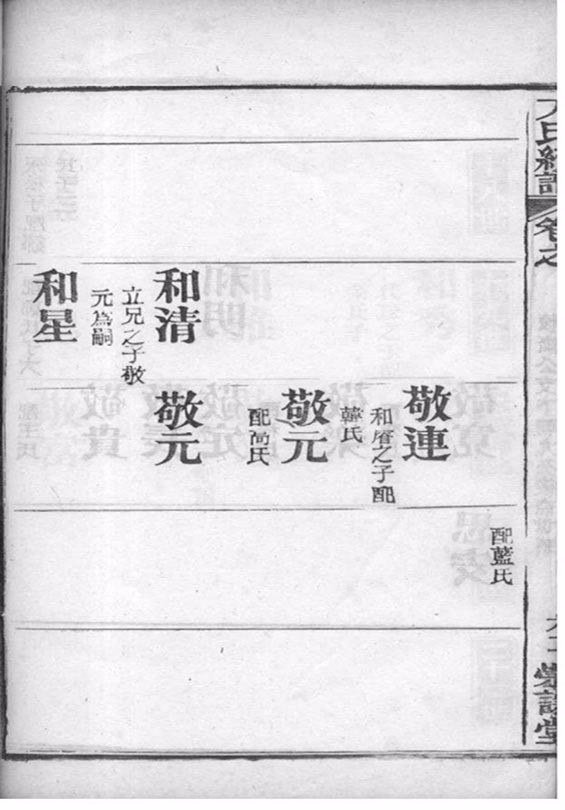 氏續譜
卷之
配藍氏
敬連
和曆之子配
韓氏
敬元
配高氏
和清
立兄之子敬
元為嗣
敬元
和星